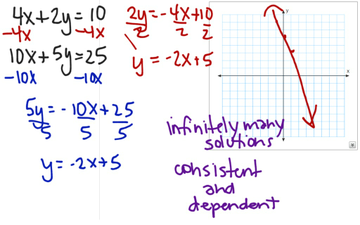 4x + 2y = 10
-4x -4x
10x + 5y = 25
-10x -10x
5y = -10x + 25
5 5 5
y = -2x + 5
2y = -4x + 10
2 2 2
y = -2x + 5
infinitely many
solutions
consistent
and
dependent